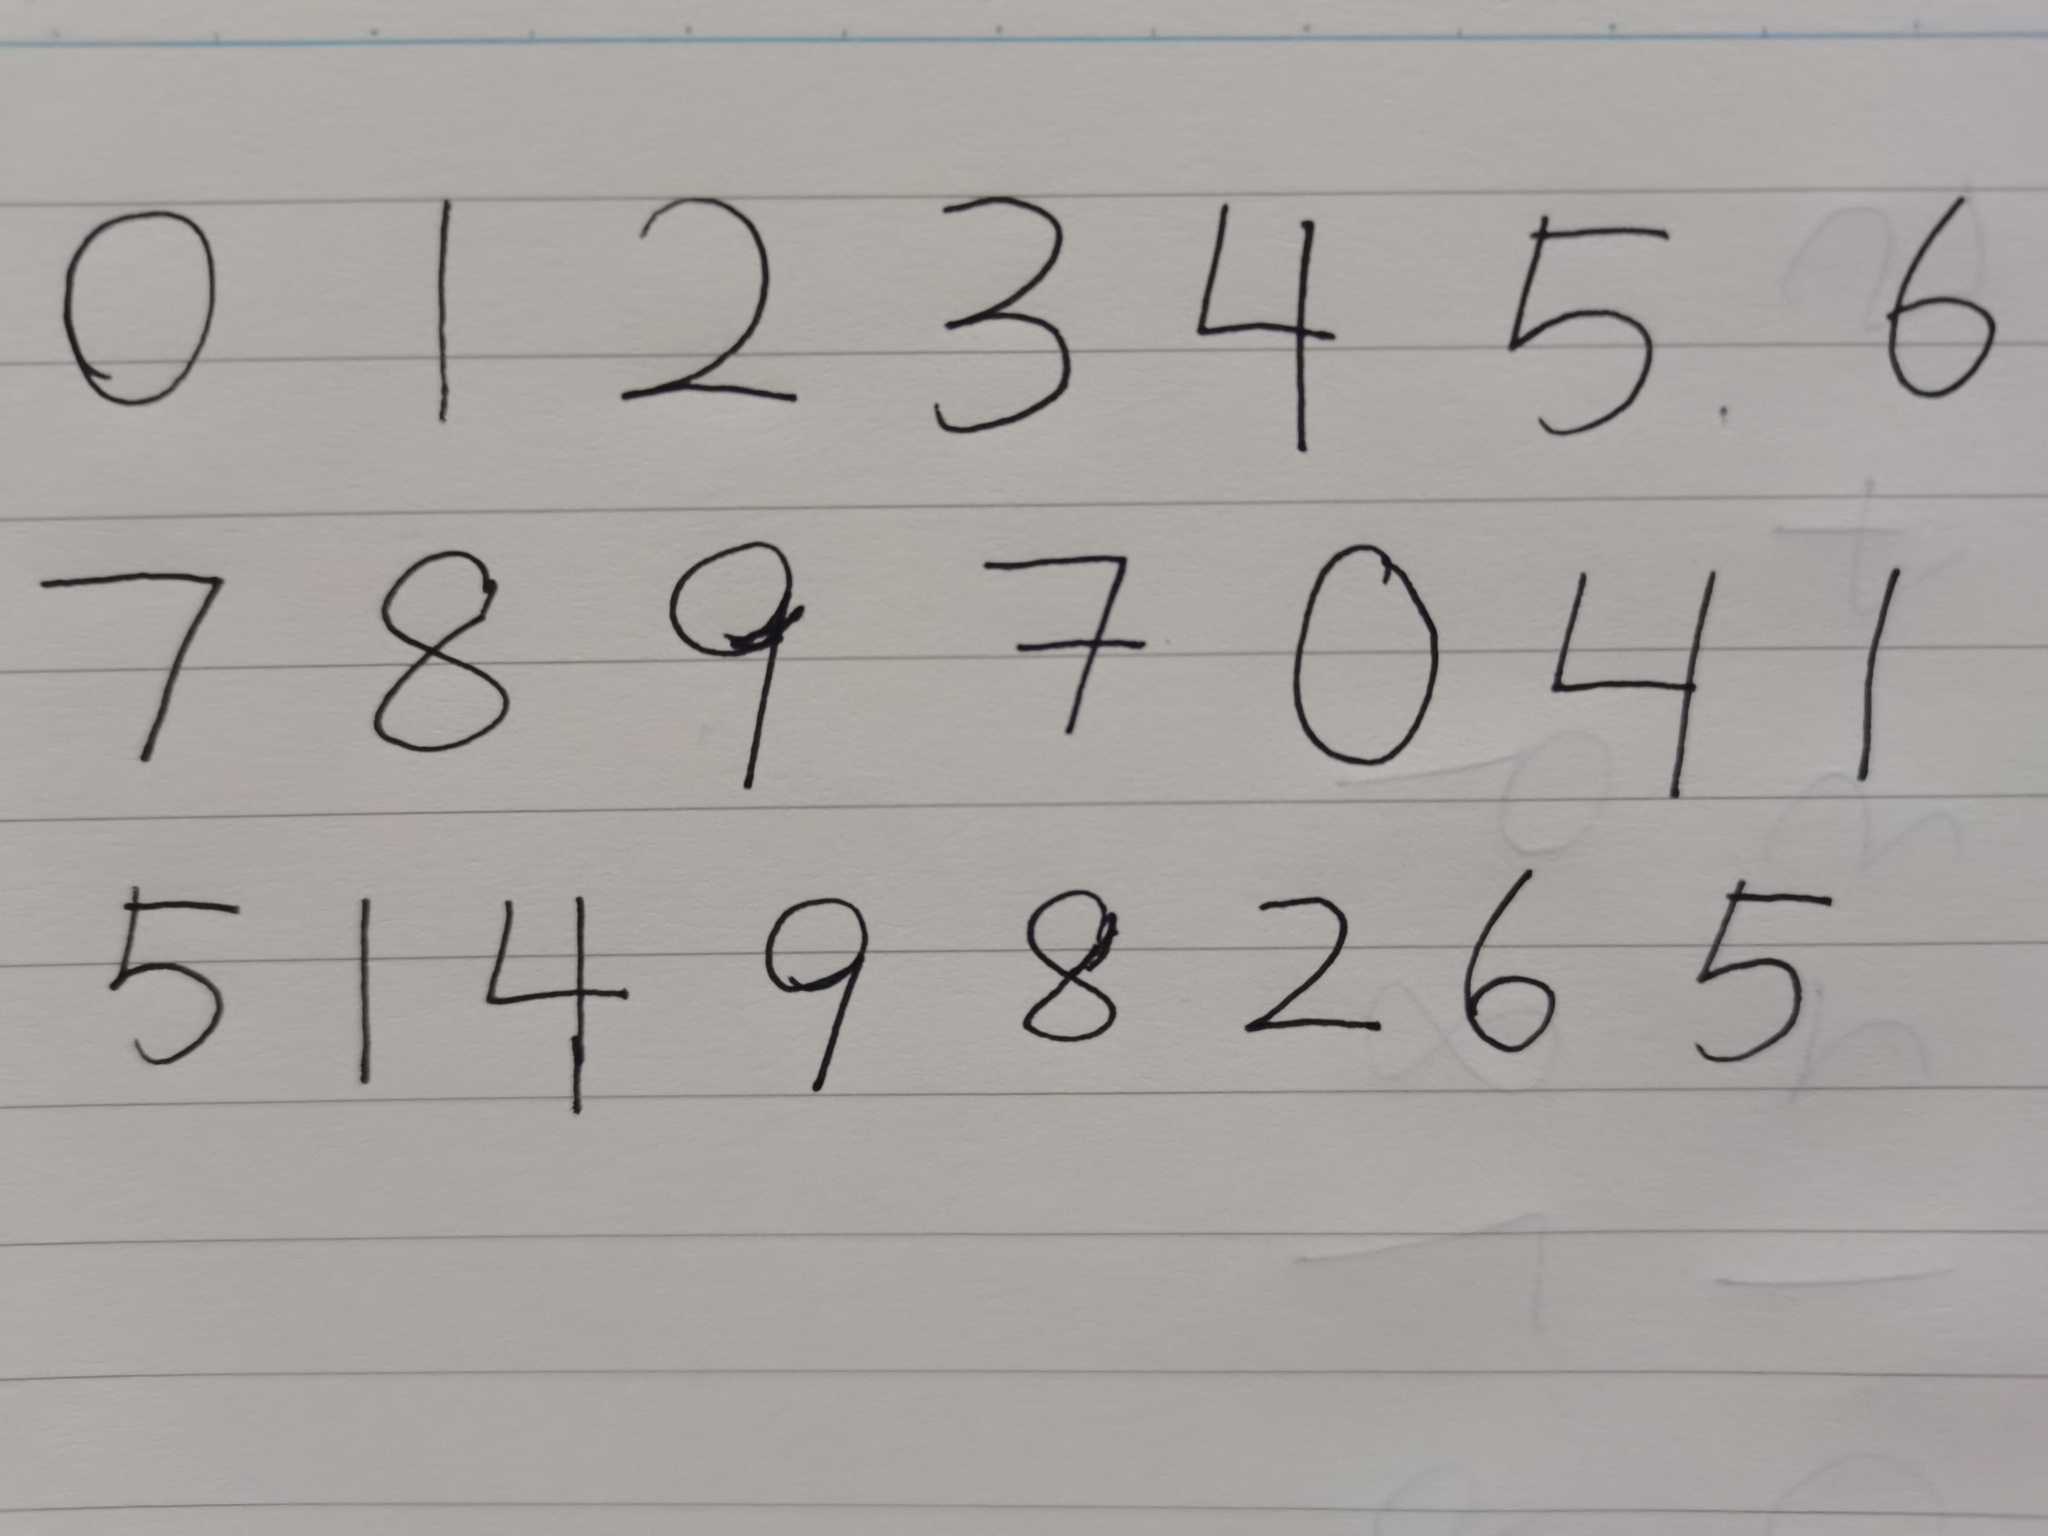 0 1 2 3 4 5 6
7 8 9 7 0 4 1
5 1 4 9 8 2 6 5